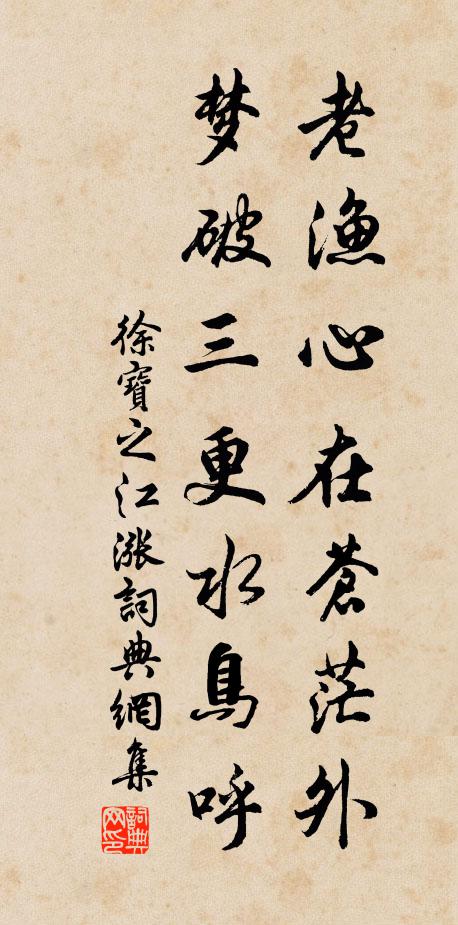 老漁心在蒼茫外
梦破三更水鳥呼
徐寶之江漲詞典網集
詞典网印